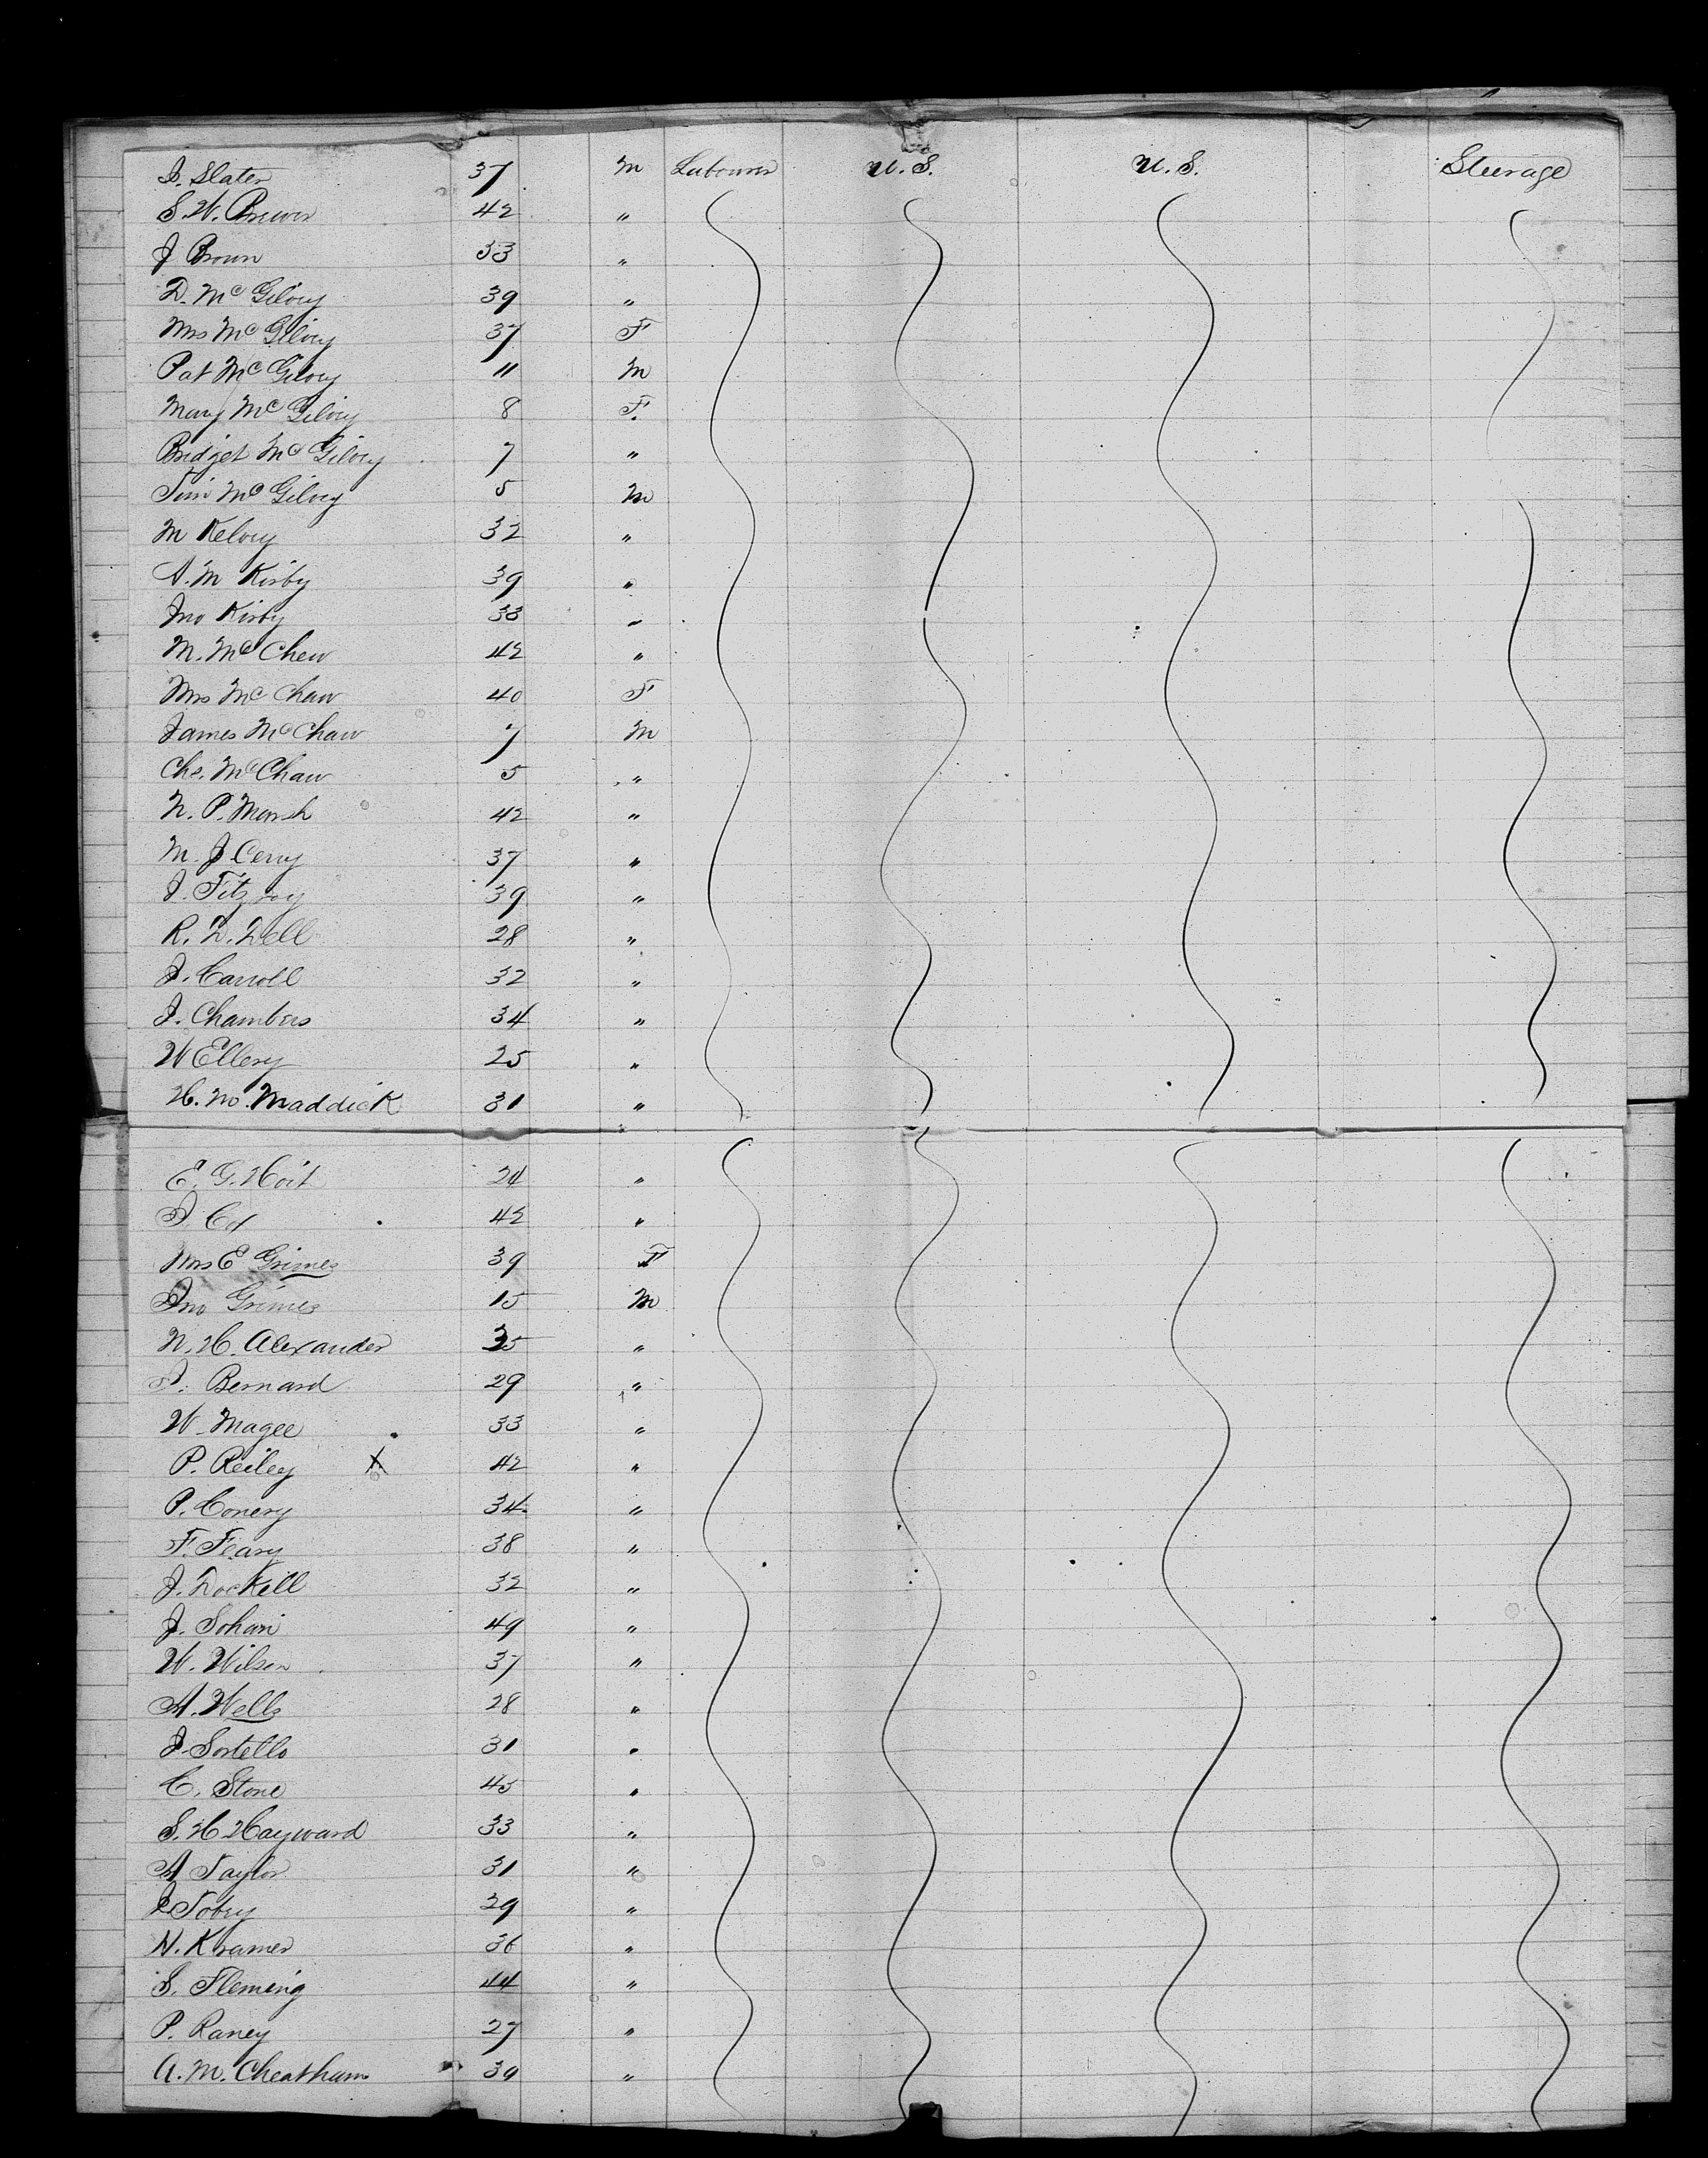 J. Slater 37 M Labourer U.S. U.S. Steerage
S. W. Brewer 42 "
J Brown 33 "
D. McGilvry 39 "
Mrs McGilvry 37 F
Pat McGilvry 11 M
Mary McGilvry 8 F.
Bridget McGilvry 7 "
Tim McGilvry 5 M
M Kelvry 32 "
A. M Kirby 39 "
Jno Kirby 33 "
M. McChew 42 "
Mrs McChaw 40 F
James McChaw 7 M
Chs. McChaw 5 "
N. P. Marsh 42 "
M. J Cerry 37 "
J. Fitzroy 39 "
R. D. Dell 28 "
J. Carroll 32 "
J. Chambers 34 "
W Ellery 25 "
H. M. Maddick 31 "
E. G. Hoit 24 "
J. Cox 42 "
Mrs E Grimes 39 F
Jno Grimes 15 M
N. H. Alexander 35 "
J. Bernard 29 "
W. Magee 33 "
P. Reiley X 42 "
P. Conery 34 "
F. Feary 38 "
J. Dockell 32 "
J. Sohan 49 "
W. Wilson 37 "
A. Wells 28 "
J. Sortello 31 "
C. Stone 45 "
S. H. Hayward 33 "
A Taylor 31 "
J. Tobey 29 "
N. Kramer 36 "
S. Fleming 44 "
P. Raney 27 "
A. M. Cheatham 39 "